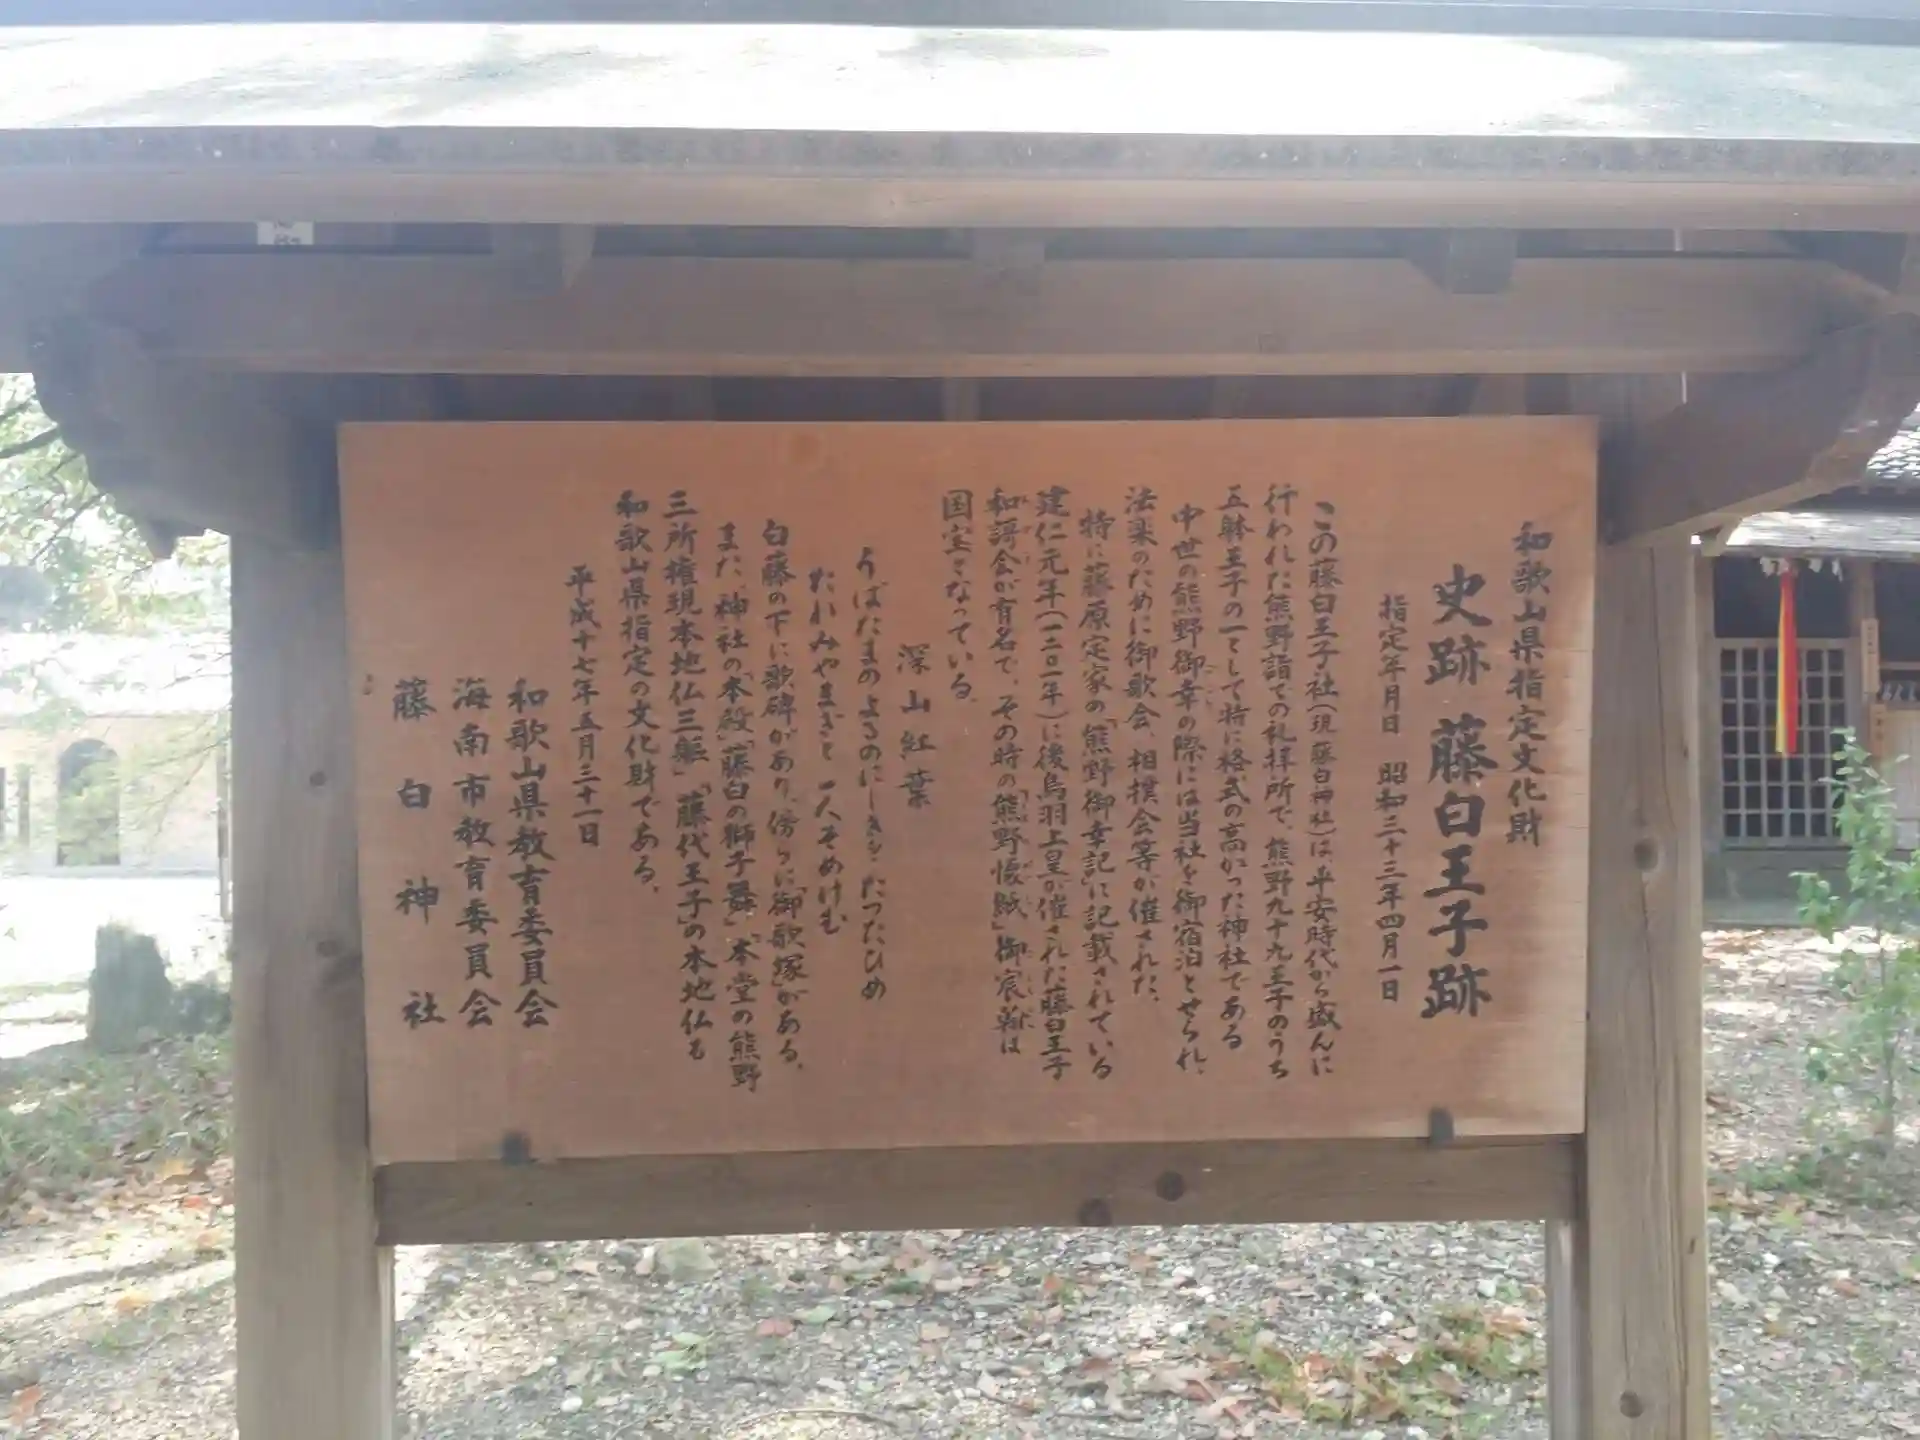 和歌山県指定文化財
史跡 藤白王子跡
指定年月日 昭和三十三年四月一日
この藤白王子社(現藤白神社)は、平安時代から盛んに
行われた熊野詣での礼拝所で、熊野九十九王子のうち
五躰王子の一として特に格式の高かった神社である
中世の熊野御幸の際には当社を御宿泊とせられ、
法楽のために御歌会、相撲会等が催された、
特に藤原定家の「熊野御幸記」に記載されている
建仁元年(一二〇一年)に後鳥羽上皇が催された藤白王子
和謌会が有名で、その時の「熊野懐紙」御宸翰は
国宝となっている、
深山紅葉
うばたまのよるのにしきをたつたひめ
たれみやまぎと一人そめけむ
白藤の下に歌碑があり、傍らに「御歌塚」がある、
また、神社の「本殿」「藤白の獅子舞」「本堂の熊野
三所権現本地仏三躯」「藤代王子」の本地仏も
和歌山県指定の文化財である、
平成十七年五月三十一日
和歌山県教育委員会
海南市教育委員会
藤白神社